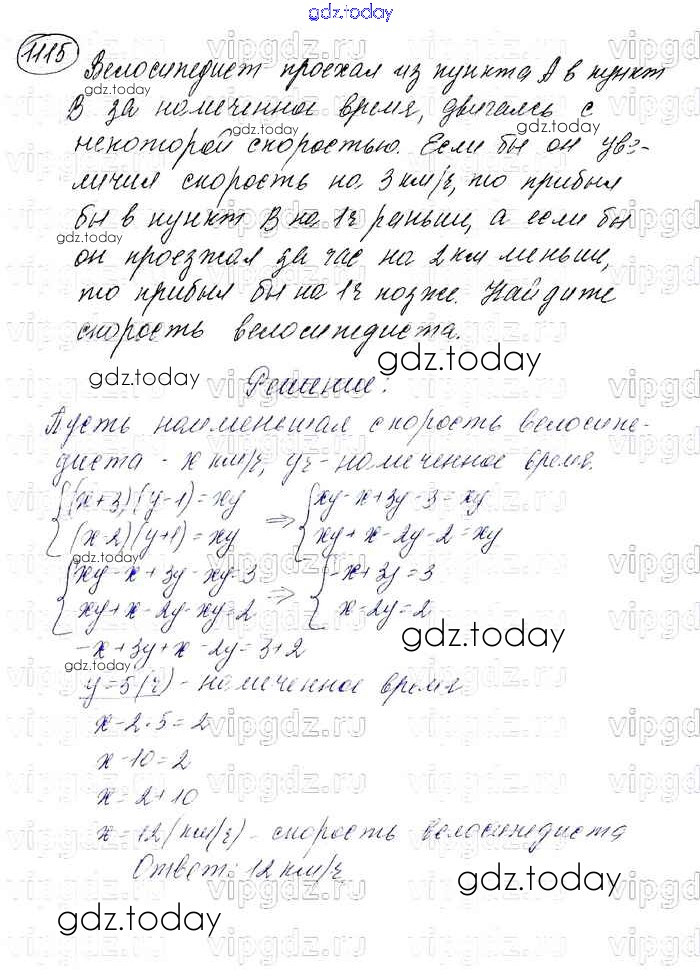 gdz.today
1115
Велосипедист проехал из пункта А в пункт
В за намеченное время, двигаясь с
некоторой скоростью. Если бы он уве-
личил скорость на 3 км/ч, то прибыл
бы в пункт В на 1ч раньше, а если бы
он проезжал за час на 2 км меньше,
то прибыл бы на 1ч позже. Найдите
скорость велосипедиста.
gdz.today gdz.today
Решение:
Пусть наименьшая скорость велосипе-
диста - x км/ч, yч - намеченное время.
{(x+3)(y-1)=xy => {xy-x+3y-3=xy
{(x-2)(y+1)=xy {xy+x-2y-2=xy
{xy-x+3y-xy=3 => {-x+3y=3
{xy+x-2y-xy=2 {x-2y=2
-x+3y+x-2y=3+2
gdz.today
y=5(ч) - намеченное время
x-2·5=2
x-10=2
x=2+10
x=12(км/ч) - скорость велосипедиста
Ответ: 12 км/ч
gdz.today
gdz.today gdz.today
vipgdz.ru